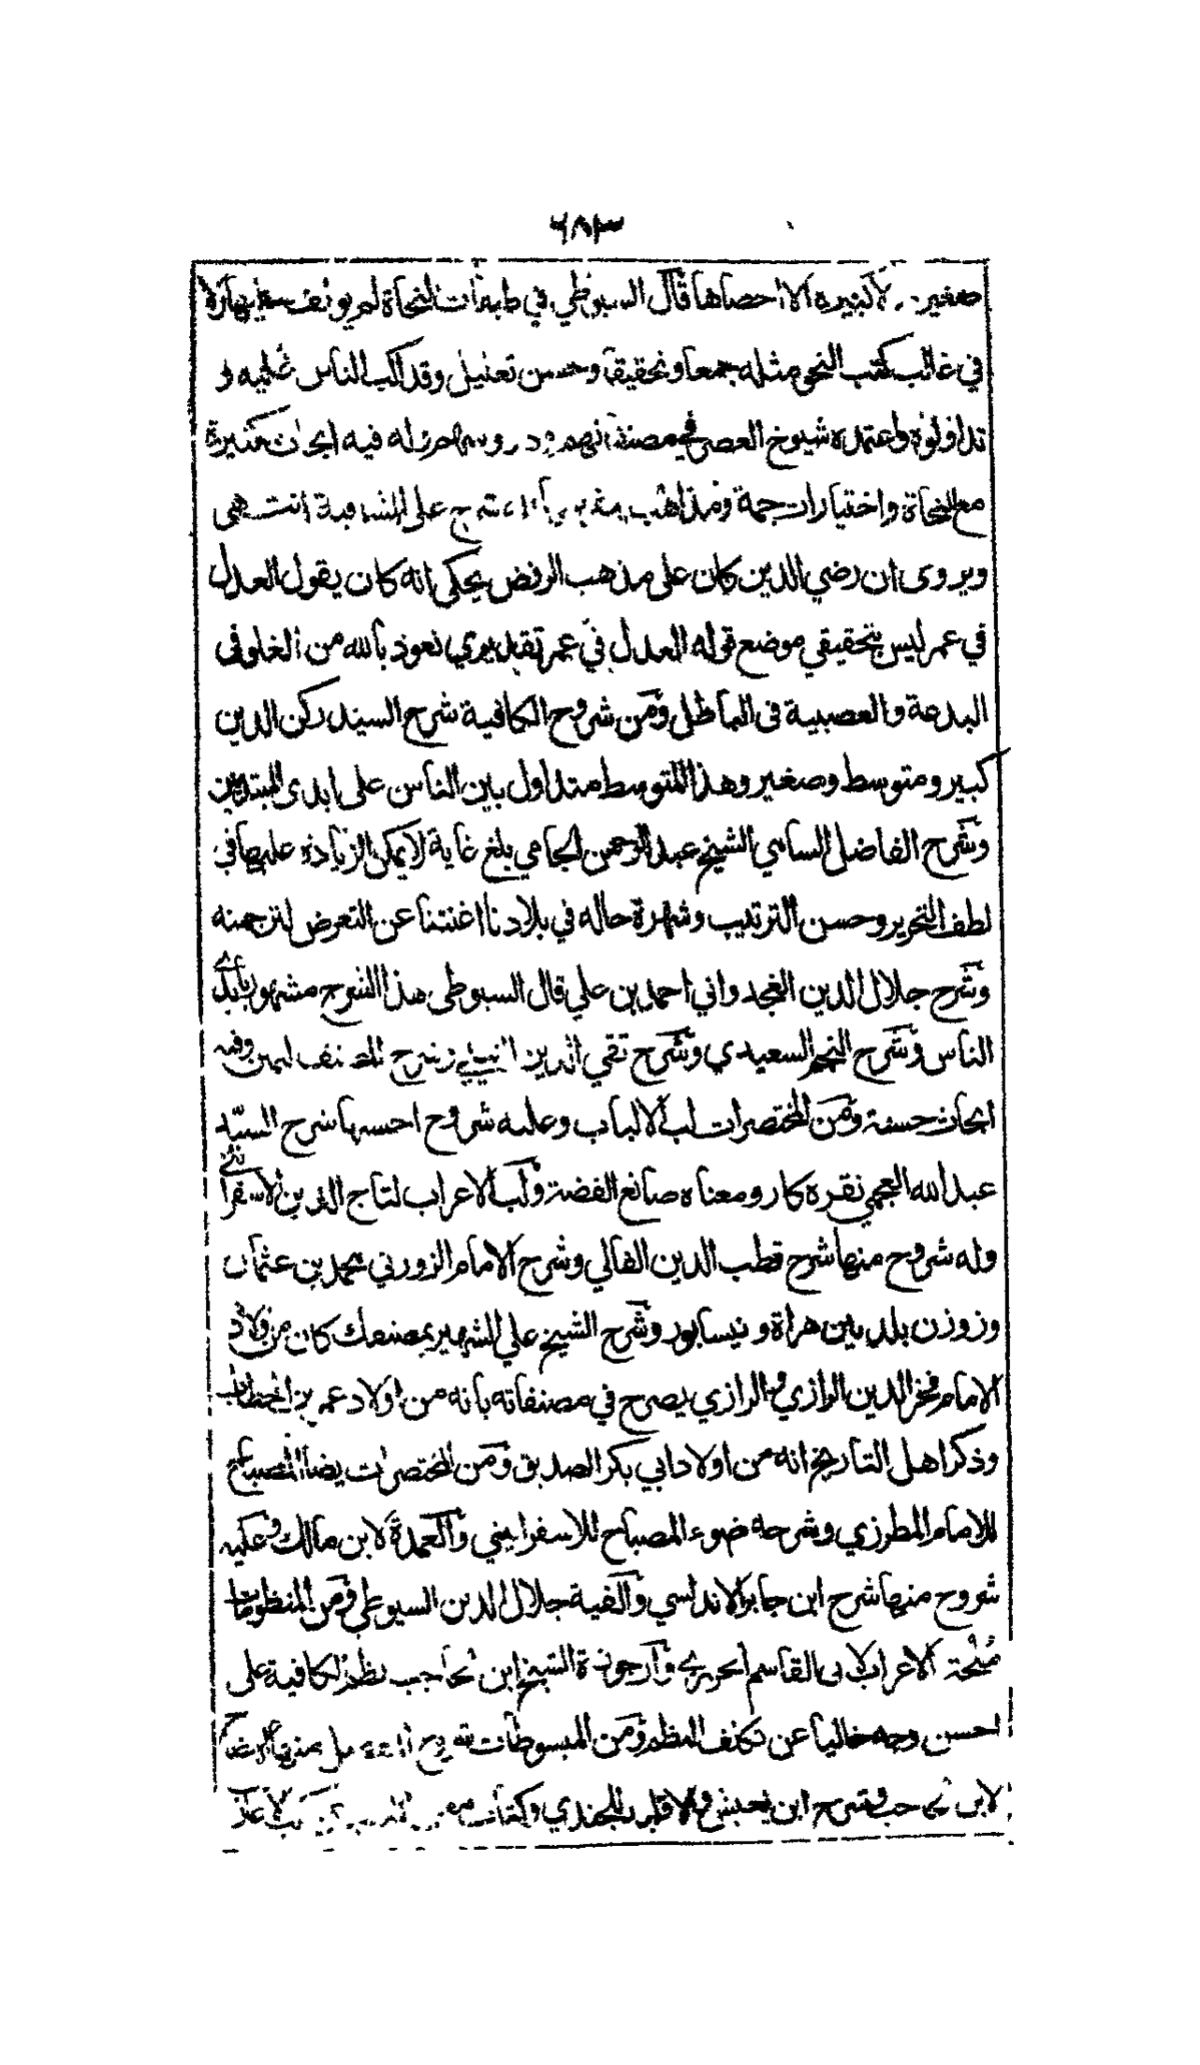 ٤٨٣
صغيرة ولا كبيرة الا احصاها قال السيوطي في طبقات النحاة لم يؤلف عليها بل
في غالب كتب النحو مثله جمعا وتحقيقا وحسن تعليل وقد اكب الناس عليه و
تداولوه واعتمده شيوخ العصر في مصنفاتهم ودروسهم وله فيه ابحاث كثيرة
مع النحاة واختيارات جمة ومذاهب شرح على الشافية انتهى
ويروى ان رضي الدين كان على مذهب الرفض يحكى انه كان يقول العدل
في عمر ليس بتحقيقي موضع قوله العدل في عمر تقديري نعوذ بالله من الغلو في
البدعة والعصبية في الباطل ومن شروح الكافية شرح السيد ركن الدين
كبير ومتوسط وصغير وهذا المتوسط متداول بين الناس على ايدي المبتدئين
وشرح الفاضل السامي الشيخ عبد الرحمن الجامي بلغ غاية لا يمكن الزيادة عليها في
لطف التحرير وحسن الترتيب وشهرة حاله في بلادنا اغنتنا عن التعرض لترجمته
وشرح جلال الدين الغجدواني احمد بن علي قال السيوطي هذا الشرح مشهور بايدي
الناس وشرح النجم السعيدي وشرح تقي الدين النيلي وشرح المصنف وفيه
ابحاث حسنة ومن المختصرات لب الالباب وعليه شروح احسنها شرح السيد
عبد الله العجمي نقره كار ومعناه صانع الفضة ولب الاعراب لتاج الدين الاسفرائني
وله شروح منها شرح قطب الدين الفالي وشرح الامام الزوزني محمد بن عثمان
وزوزن بلد بين هراة ونيسابور وشرح الشيخ علي الشهير بمصنفك كان من اولاد
الامام فخر الدين الرازي والرازي يصرح في مصنفاته بانه من اولاد عمر بن الخطاب
وذكر اهل التاريخ انه من اولاد ابي بكر الصديق ومن المختصرات ايضا المصباح
للامام المطرزي وشرحه ضوء المصباح للاسفرايني والعمدة لابن مالك وعليه
شروح منها شرح ابن جابر الاندلسي والفية جلال الدين السيوطي ومن المنظومات
ملحة الاعراب لابي القاسم الحريري وارجوزة الشيخ ابن الحاجب نظم الكافية على
احسن وجه خاليا عن تكلف النظم ومن المبسوطات شروح المفصل منها الايضاح
لابن الحاجب وشرح ابن يعيش والاقليد للجندي وكتاب